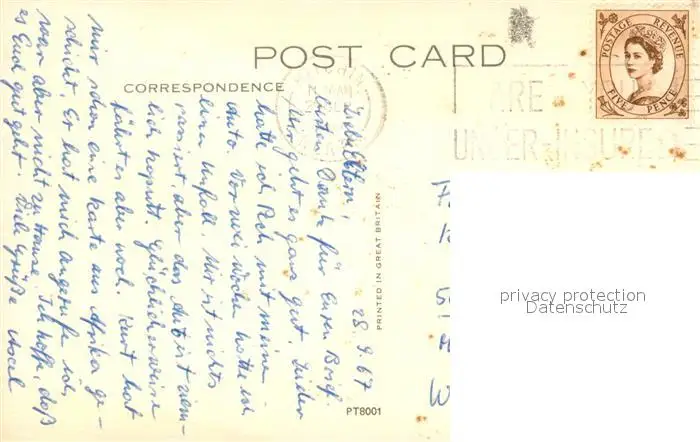 POST CARD
CORRESPONDENCE
POSTAGE REVENUE
FIVE PENCE
ARE
UNDER-INSURED
28.9.67
Liebe Eltern!
vielen Dank für Euren Brief.
Mir geht es ganz gut. Leider
hatte ich Pech mit meinem
Auto. Vor zwei Wochen hatte ich
einen Unfall. Mir ist nichts
passiert, aber das Auto ist ziem-
lich kaputt. Glücklicherweise
fährt es aber noch. Kurt hat
mir schon eine Karte aus Afrika ge-
schickt. Er hat mich angerufen, ich
war aber nicht zu Hause. Ich hoffe, daß
es Euch gut geht. Viele Grüße
PRINTED IN GREAT BRITAIN
PT8001
privacy protection
Datenschutz